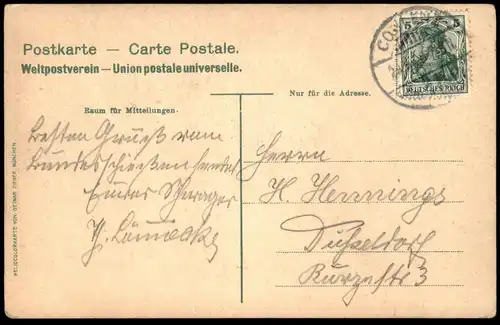 Postkarte — Carte Postale.
Weltpostverein — Union postale universelle.
Raum für Mitteilungen.
Nur für die Adresse.
5 5
DEUTSCHES REICH
Besten Gruß vom
Bundesschießen sendet
Schwager
Herrn
H. Hennings
Düsseldorf
Kurzestr 3
HELIOCOLORKARTE VON OTTMAR ZIEHER, MÜNCHEN